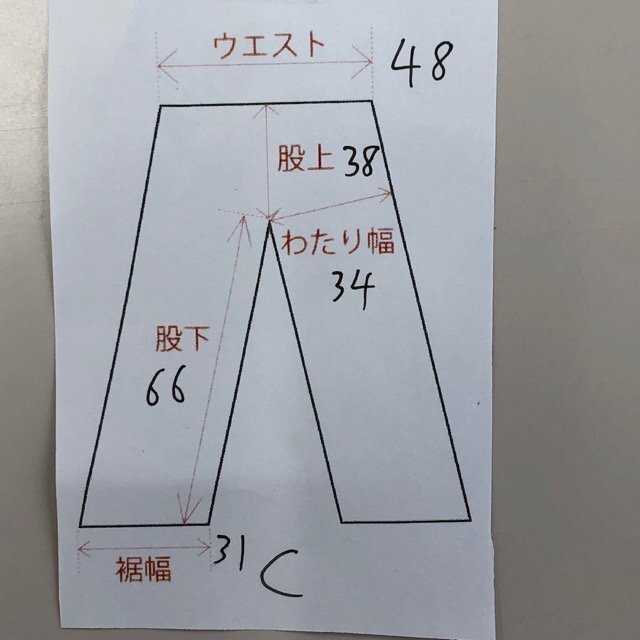 ウエスト 48
股上 38
わたり幅
34
股下
66
裾幅 31 C